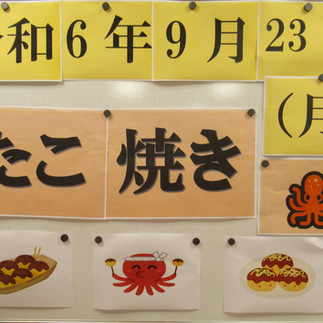 令和6年9月23
(月
たこ焼き